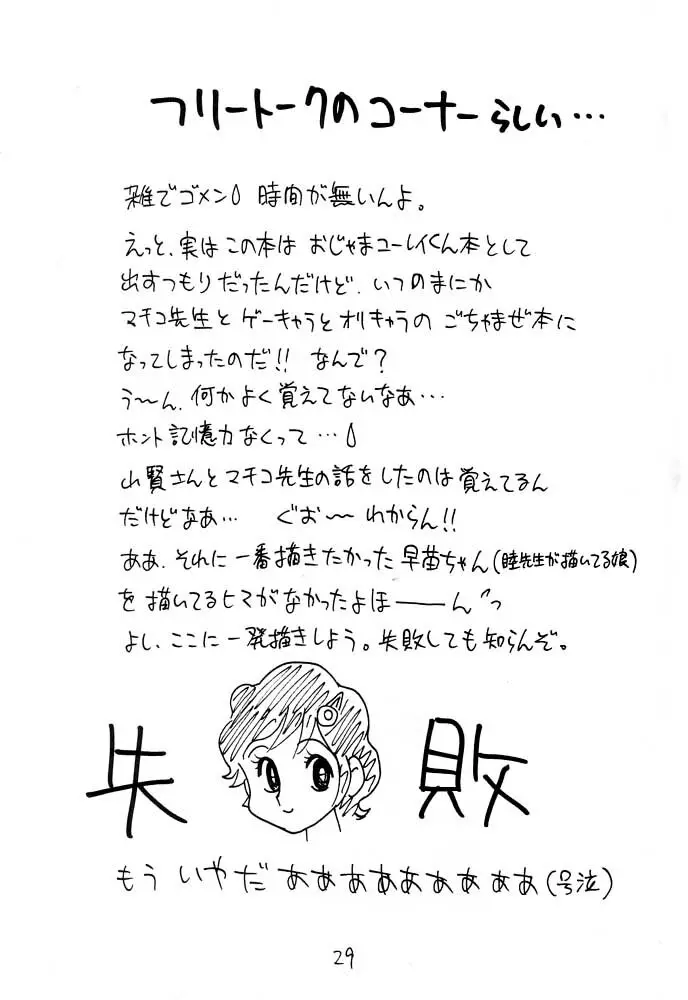 フリートークのコーナーらしい…
雑でゴメン 時間が無いんよ。
えっと、実はこの本は おじゃまユーレイくん本として
出すつもりだったんだけど、いつのまにか
マチコ先生と ゲーキャラとオリキャラの ごちゃまぜ本に
なってしまったのだ!! なんで?
う〜ん、何かよく覚えてないなあ…
ホント記憶力なくって…
山賢さんと マチコ先生の話をしたのは 覚えてるん
だけどなあ… ぐお〜 わからん!!
ああ、それに一番描きたかった 早苗ちゃん(睦先生が描いてる娘)
を 描いてるヒマがなかったよほーーん
よし、ここに一発描きしよう。失敗しても知らんぞ。
失 敗
もう いやだ あああああああああ(号泣)
29